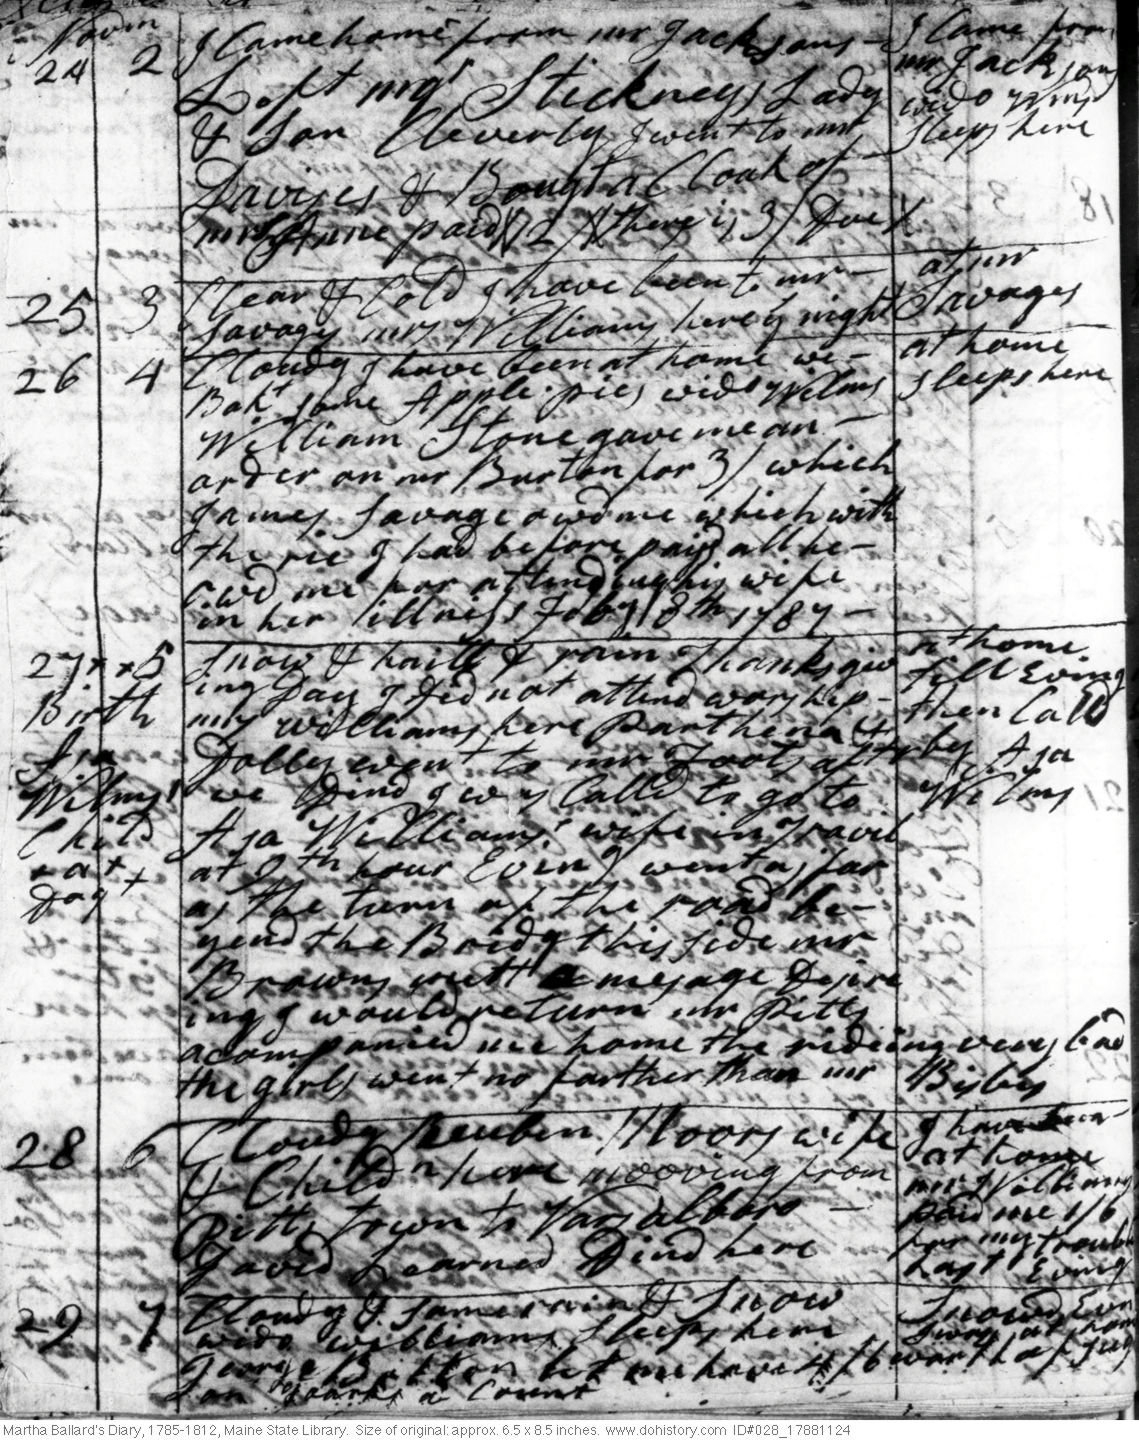 Novm
24 2 I Came home from mr Jacksons - I Came from
Left mrs Stickneys Lady mr Jacksons
& Son Cleverly I went to mr wido wms
Davises & Bougt a Cloak of Sleeps here
mrs Anne paid 12/ there is 3/ Due
25 3 Clear & Cold I have been to mr - at mr
Savages mrs Williams here ys night Savages
26 4 Cloudy I have been at home we - at home
Bakt some Apple pies wido Wilms sleeps here
William Stone gave me an -
order on mr Burton for 3/ which
James Savage owd me which with
the rie I had before paid all he -
owd me for attending his wife
in her illness Feby 18th 1787 -
27 x x 5 Snow & haill & rain Thanksgiv at home
ing Day I did not attend worship - till Evng
Birth mrs williams here Parthena & then Calld
Asa Dolly went to mr Foots aftr by Asa
Wilmss we Dind I was Calld to go to Wilms
Child Asa Williams' wife in Travil
at 9th hour Evng I went as far
Dagt as the turn of the road be -
yend the Bridg this side mr
Browns mett a mesage Desire
ing I would return mr Pitts
acompanied me home the rideing very bad
the girls went no farther than mr Bisbys
28 6 Cloudy Reuben Moors wife I have been
& Childn here mooving from at home
Pittstown to Vasalboro - mr Williams
David Learned Dind here paid me 1/6
for my troubl
last Evng
29 7 Cloudy & some rain & Snow Snowd Evn
wido williams Sleeps here I was at home
George Britton let me have 4/6 worth of
on a Count
Martha Ballard's Diary, 1785-1812, Maine State Library. Size of original: approx. 6.5 x 8.5 inches. www.dohistory.com ID#028_17881124